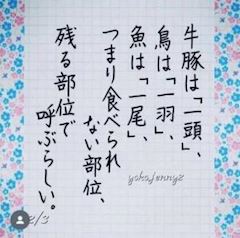 牛豚は「一頭」、
鳥は「一羽」、
魚は「一尾」、
つまり食べられ
ない部位、
残る部位で
呼ぶらしい。
yokojennyz
2/3